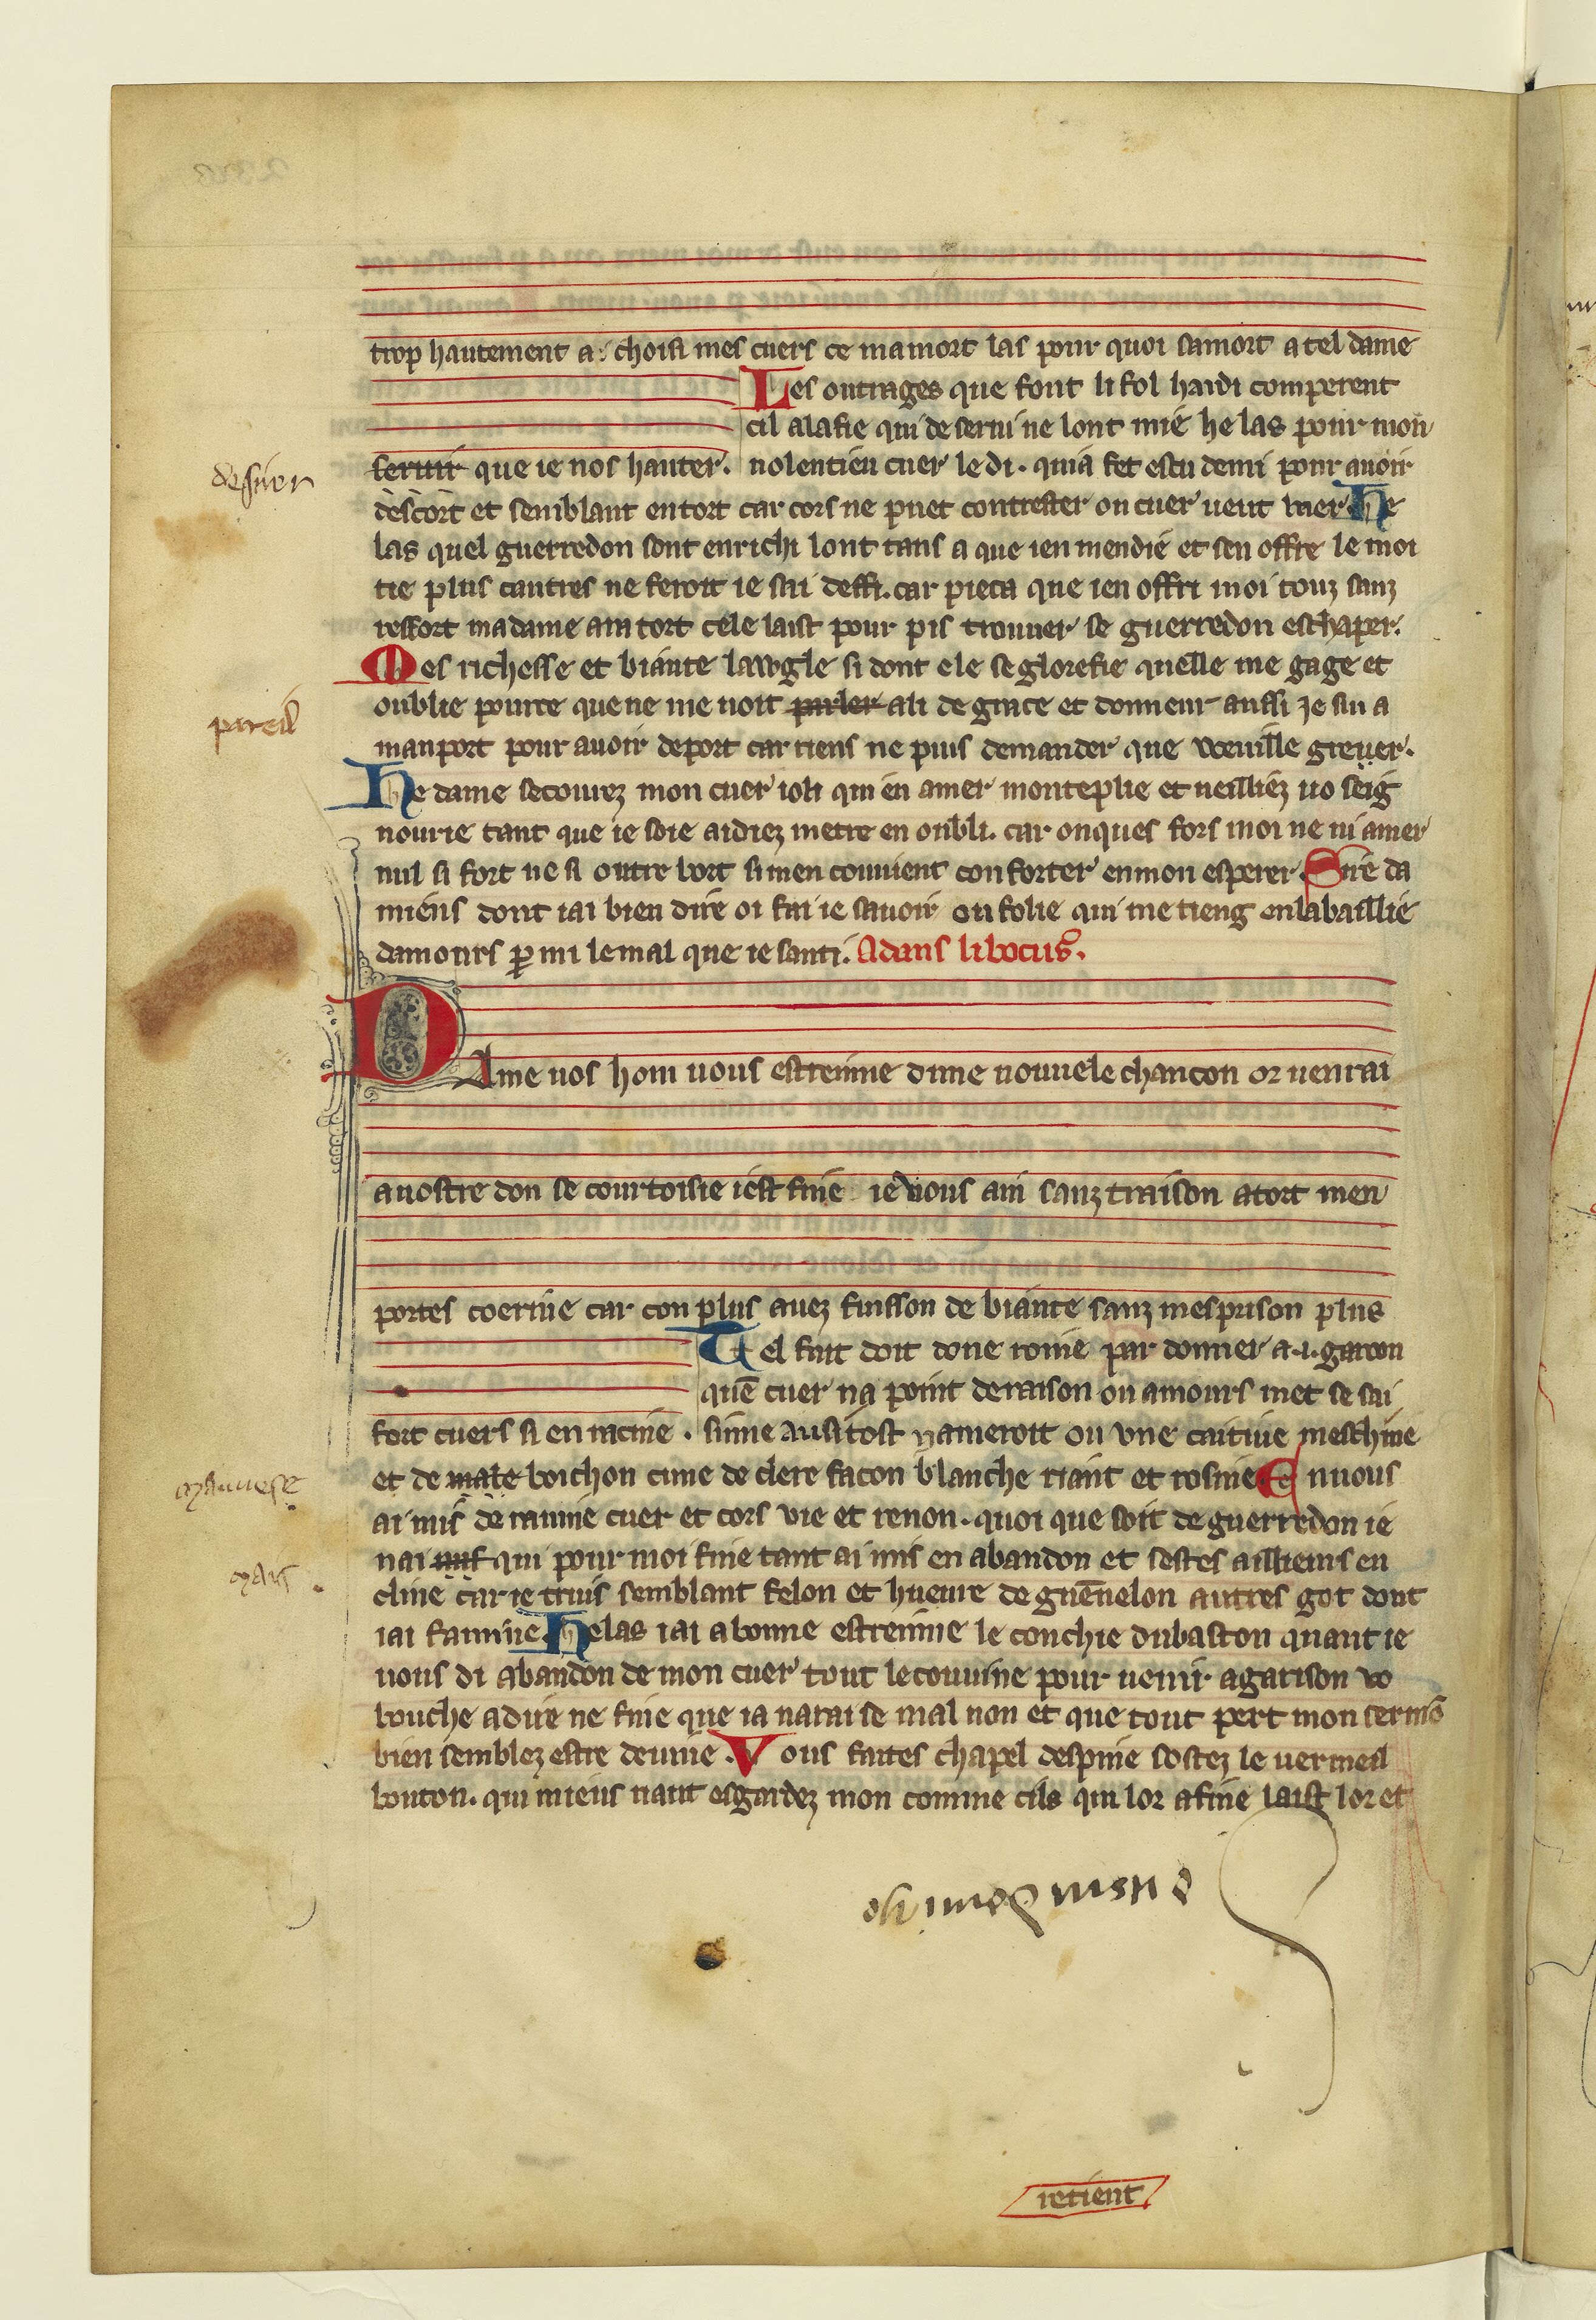 trop hautement a. choisi mes cuers ce mamort las pour quoi samort a tel dame
Les outrages que font li fol hardi comperent
cil alafie qui deserui ne lont mie he las pour mon
desiuer
seruir que ie nos hanter. uolentieu cuer le di. quia fet escu demi pour auoir
descort et semblant en tort car cors ne puet contrester ou cuer ueut uuer He
las quel guerredon sont enrichi lont tans a que ien mendie et sen offre le moi
tie plus cautres ne feroit ie sui deffi. car pieca que ien offri moi touz sanz
ressort ma dame a tort cele laist pour pis trouuer se guerredon eschaper.
Mes richesse et biaute lauugle si dont ele se glorefie quelle me gage et
pareil
oublie pource que ne me uoit parler ali de grace et donneur aussi Je sui a
mauport pour auoir deport car riens ne puis demander que woeuille greuer.
He dame secourez mon cuer ioli qui en amer monteplie et ueilliez uo seig
nourie tant que ie soie aidiez metre en oubli. car onques fors moi ne ui amer
nul si fort ne si outre bort si men couuient conforter en mon esperer Sire da
miens dont iai bien dire oi fai ie sauoir ou folie qui me tieng en la baillie
damours p mi le mal que ie santi. Adans li bocus.
DAme uos hom uous estrenine dune nouuele chancon or uenrai
a uostre don se courtoisie iest fine ie uous aim sanz traison a tort men
portes coerine car con plus auez fuisson de biaute sanz mesprison plus
Tel fait doit done roine par donner a .i. garcon
quē cuer na point de raison ou amours met se sai
fort cuers si en racine. sinne ausi tost nameroit ou vne caitiue meschine
mauuese
et de mate boichon cune de clere facon blanche riant et rosine En uous
ai mis de rauine cuer et cors vie et renon. quoi que soit de guerredon ie
mais
nai nuf qui pour moi fine tant ai mis en abandon et sestes ailliems en
cline car ie truis semblant felon et hueure de guēnelon autres got dont
iai famine Helas iai a bonne estrenine le conchie du baston quant ie
uous di abandon de mon cuer tout le couuine pour uenir a garison vo
bouche a dire ne fine que ia narai se mal non et que tout pert mon sermō
bien semblez estre deuine. Vous faites chapel despine sostez le uermeil
bouton. qui mieus uaut esgardez mon comme cils qui lor afine laist lor et
retient